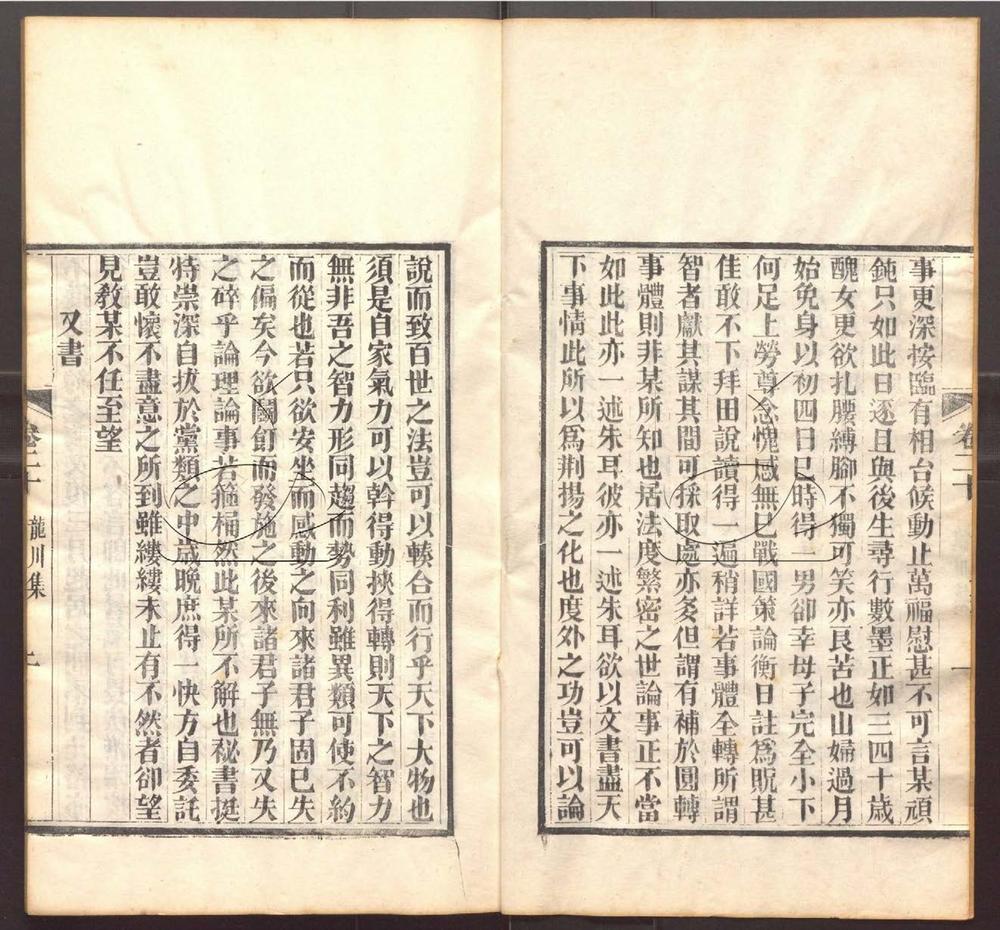 事更深按臨有相台候動止萬福慰甚不可言某頑
鈍只如此日逐且與後生尋行數墨正如三四十歲
醜女更欲扎腰縛腳不獨可笑亦良苦也山婦過月
始免身以初四日巳時得一男卻幸母子完全小下
何足上勞尊念愧感無已戰國策論衡日註爲貺甚
佳敢不下拜田說讀得一遍稍詳若事體全轉所謂
智者獻其謀其間可採取處亦多但謂有補於圓轉
事體則非某所知也居法度繁密之世論事正不當
如此此亦一述朱耳彼亦一述朱耳欲以文書盡天
下事情此所以爲荆揚之化也度外之功豈可以論
卷二十
一
說而致百世之法豈可以輳台而行乎天下大物也
須是自家氣力可以斡得動挾得轉則天下之智力
無非吾之智力形同趨而勢同利雖異類可使不約
而從也若只欲安坐而感動之向來諸君子固已失
之偏矣今欲鬭飣而發施之後來諸君子無乃又失
之碎乎論理論事若箍桶然此某所不解也秘書挺
特崇深自拔於黨類之中歲晚庶得一快方自委託
豈敢懷不盡意之所到雖縷縷未止有不然者卻望
見敎某不任至望
又書
卷二十
龍川集
二